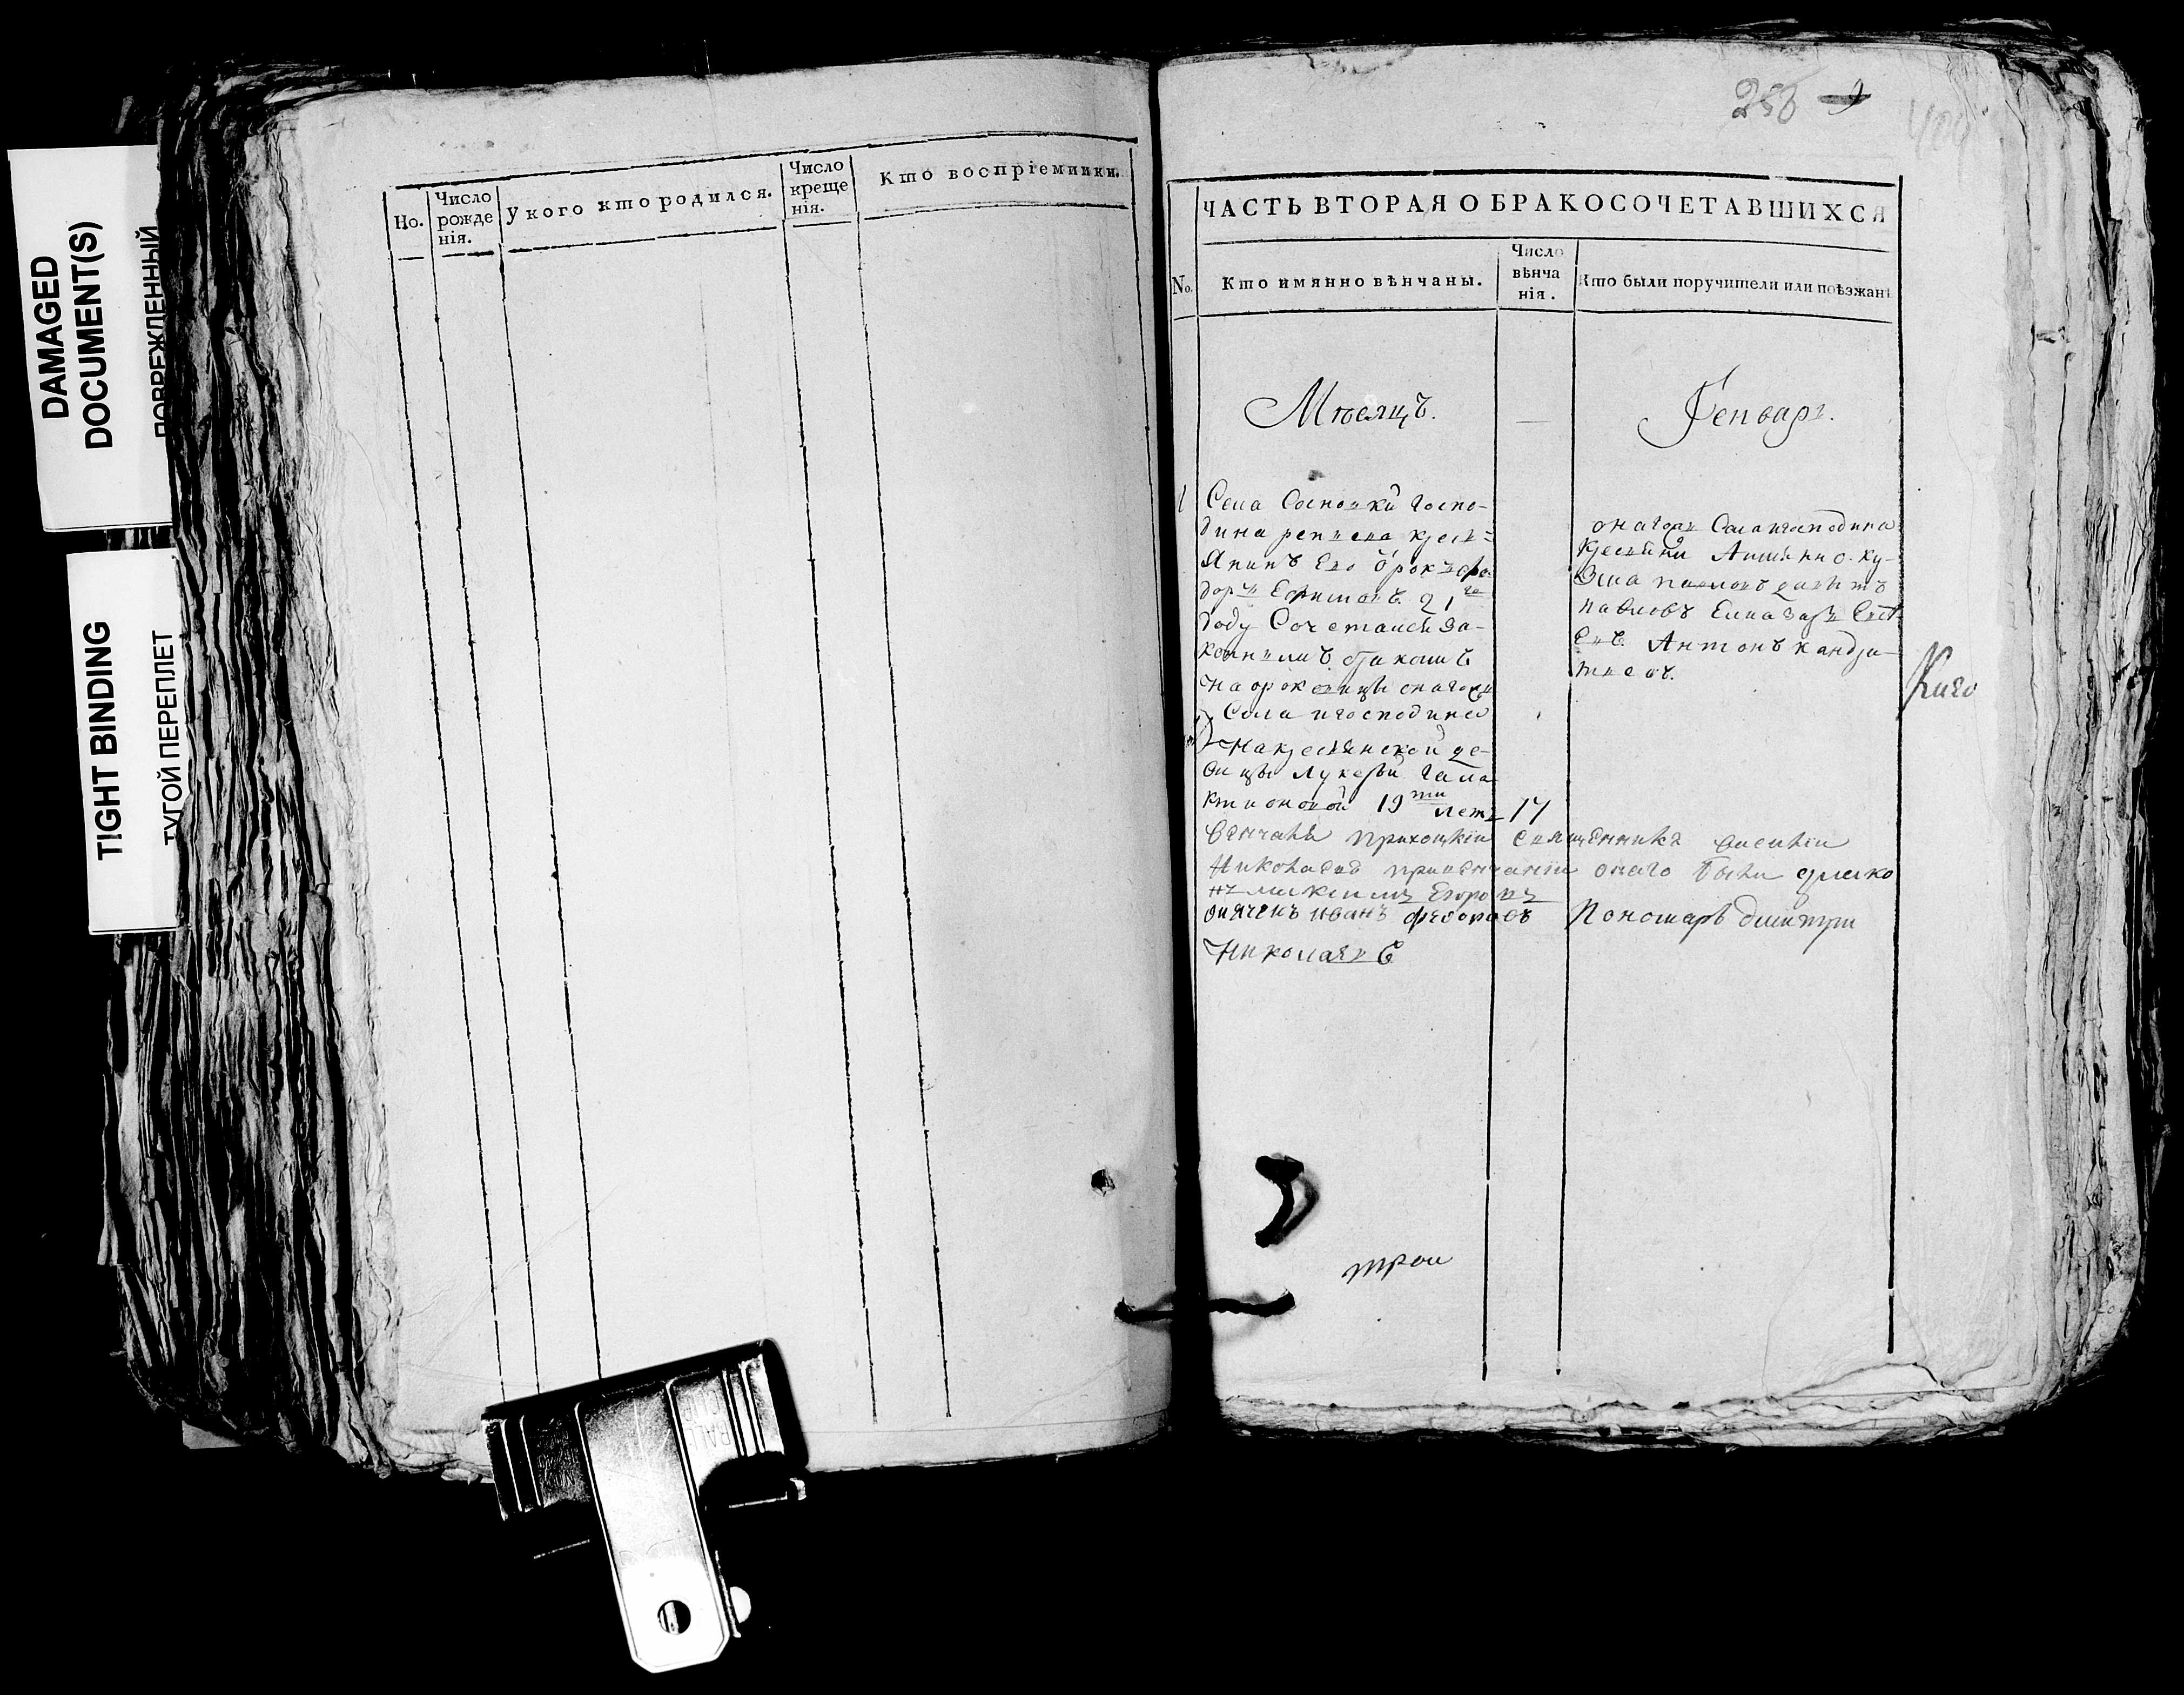 DAMAGED
DOCUMENT(S)
ПОВРЕЖДЕННЫЙ
TIGHT BINDING
ТУГОЙ ПЕРЕПЛЕТ
Но.
Число рожде нія.
У кого кто родился.
Число креще нія.
Кто воспріемники.
256
400
ЧАСТЬ ВТОРАЯ О БРАКОСОЧЕТАВШИХСЯ
No.
Кто имянно вѣнчаны.
Число вѣнча нія.
Кто были поручители или поѣзжані
Мѣсяцъ.
Генварь.
1
Села Сосновки госпо-
дина крест=
янинъ Его отрокъ фео-
доръ Ефимовъ 21го
году Сочетался за-
коннымъ бракомъ
на отроковицы онагожъ
Села и господина
на крестьянской де-
вицы лукерьи гала
ктионовой 19ти летъ
17
онагожъ Села и господина
Кузма
павловъ Елиазаръ
Антонъ кандра-
тьевъ.
Венчалъ приходскіи священникъ василіи
Николаевъ при венчаніи онаго были дьяко
нъ максимъ Егоровъ
дьячекъ иванъ федоровъ Пономарь дмитри
Николаевъ
трои